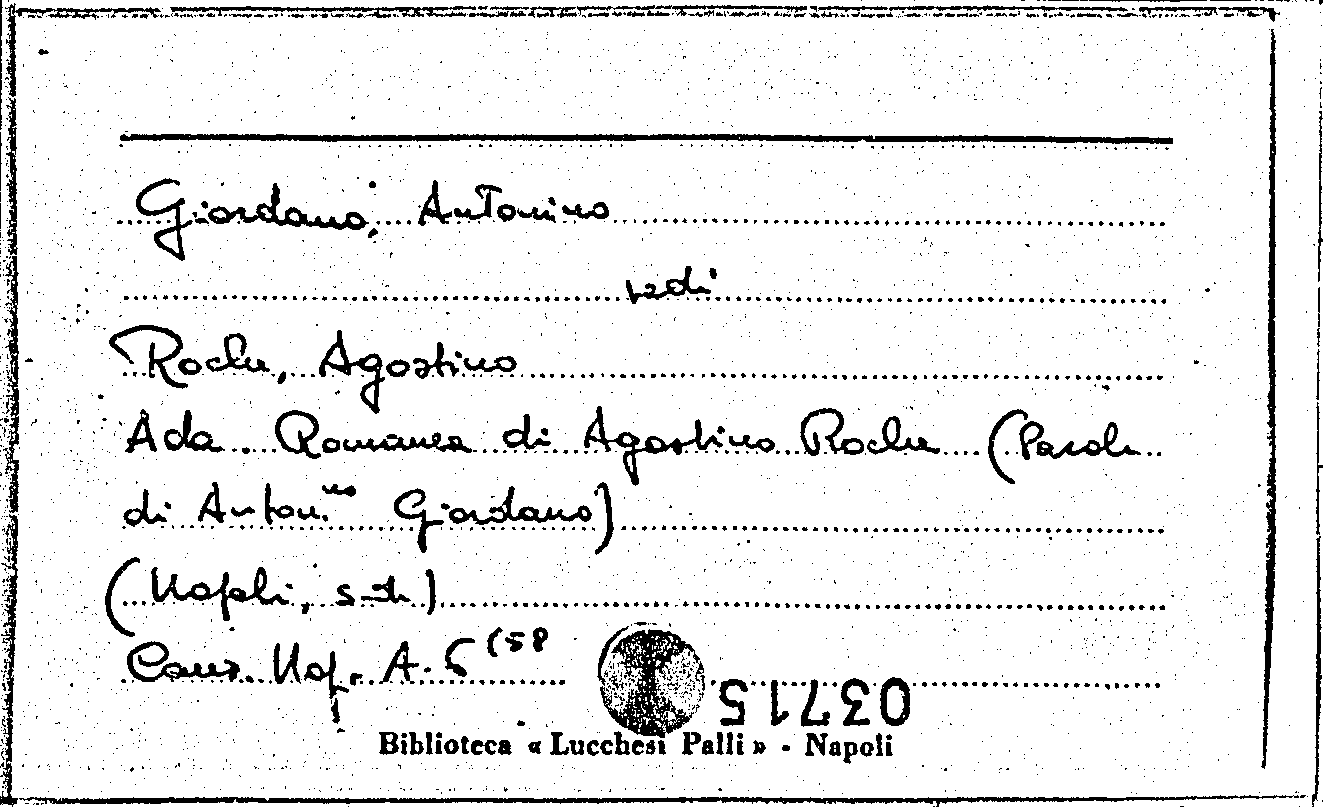 Giordano, Antonino
vedi
Roche, Agostino
Ada. Romanza di Agostino Roche (Parole
di Antonino Giordano)
(Napoli,
Cons. Nap. A. 5 (58
03715
Biblioteca « Lucchesi Palli » - Napoli